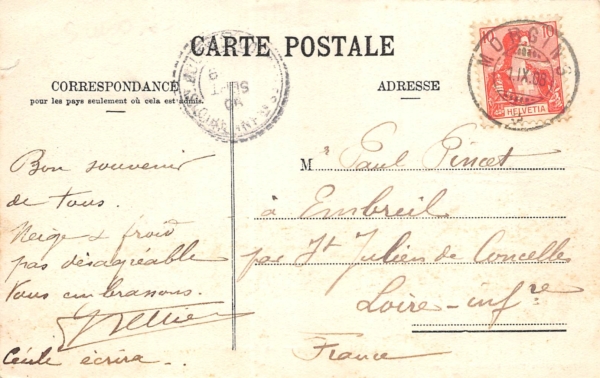 CARTE POSTALE
CORRESPONDANCE
pour les pays seulement où cela est admis.
ADRESSE
10 10
HELVETIA
MORGINS
1.IX.08
Bon souvenir
de tous.
Neige & froid
pas désagréable
Vous embrassons.
Cécile écrira -.
M Paul
à Embreil
par St Julien de Concelles
Loire-infre
France